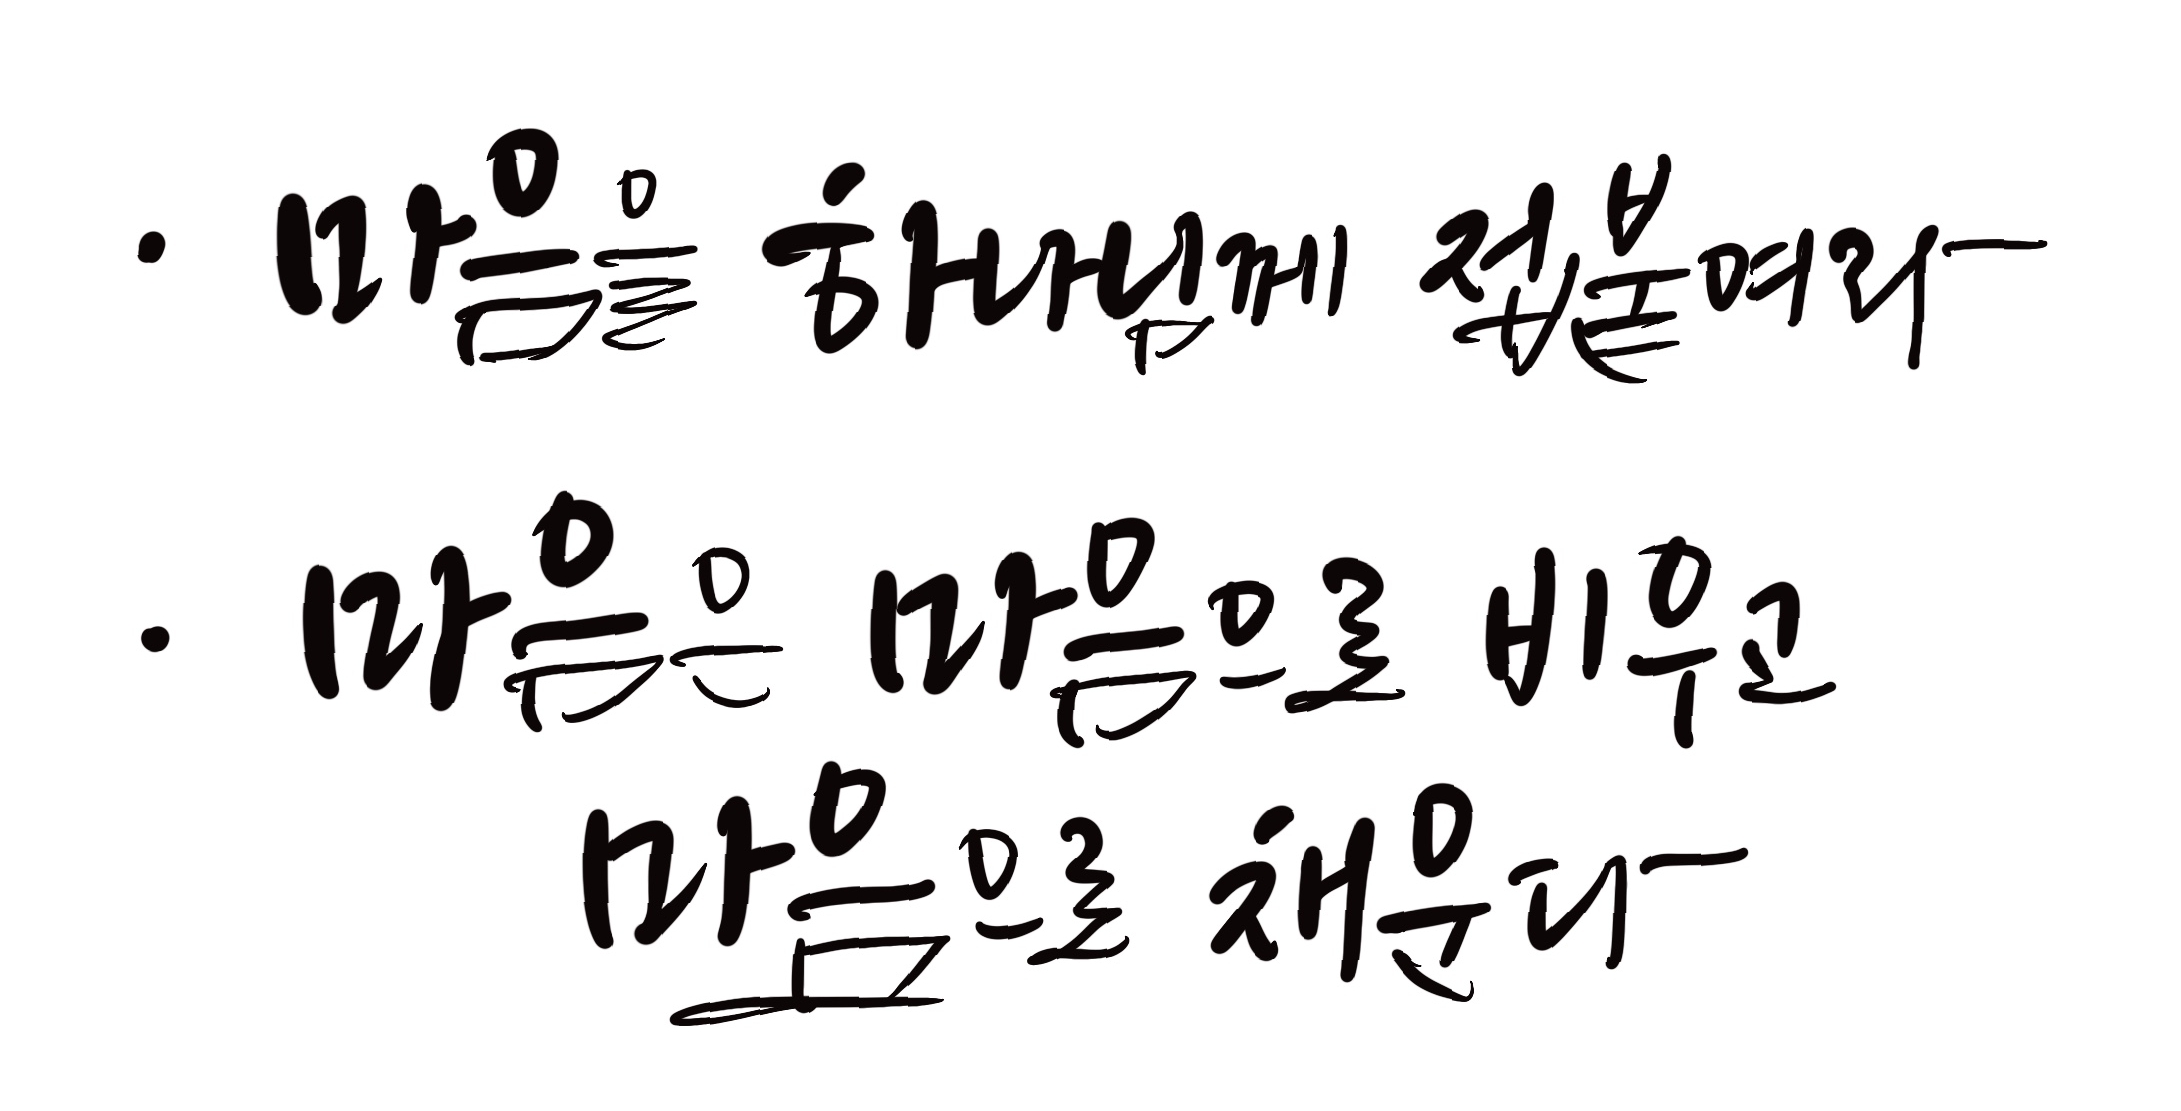 · 마음을 하나님께 접붙여라
· 마음은 마음으로 비우고
마음으로 채운다